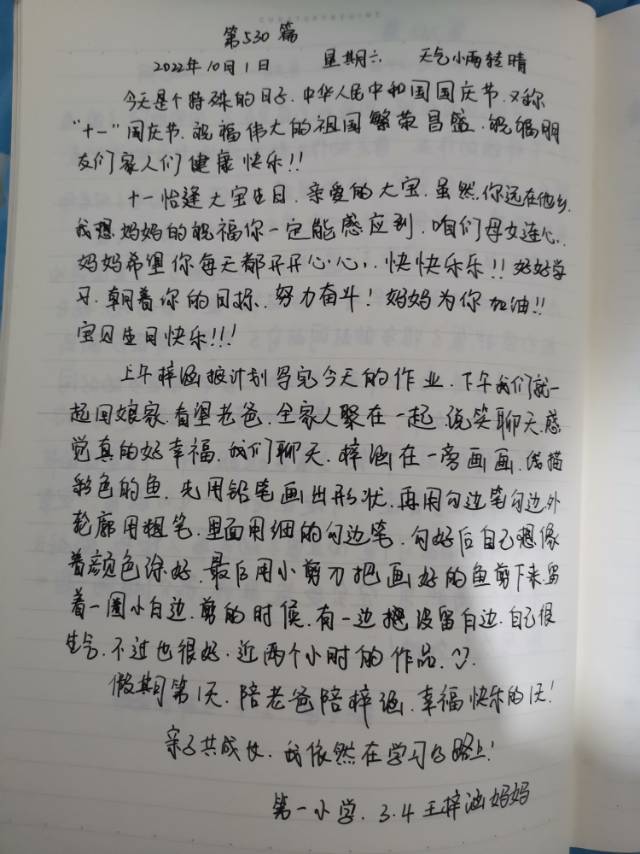 第530篇
2022年10月1日 星期六 天气小雨转晴
今天是个特殊的日子.中华人民中和国国庆节.又称
“十一”国庆节.祝福伟大的祖国繁荣昌盛.祝福朋
友们家人们健康快乐!!
十一恰逢大宝生日.亲爱的大宝.虽然你远在他乡.
我想妈妈的祝福你一定能感应到.咱们母女连心.
妈妈希望你每天都开开心心.快快乐乐!!好好学
习.朝着你的目标.努力奋斗!妈妈为你加油!!
宝贝生日快乐!!!
上午梓涵按计划写完今天的作业.下午我们就一
起回娘家.看望老爸.全家人聚在一起.说笑聊天.感
觉真的好幸福.我们聊天.梓涵在一旁画画.线描
彩色的鱼.先用铅笔画出形状.再用勾边笔勾边外
轮廓用粗笔.里面用细的勾边笔.勾好后自己想像
着颜色涂好.最后用小剪刀把画好的鱼剪下来.留
着一圈小白边.剪的时候.有一边把没留白边.自己很
生气.不过也很好.近两个小时的作品.
假期第1天.陪老爸陪梓涵.幸福快乐的1天!
亲子共成长.我依然在学习的路上!
第一小学.3.4王梓涵妈妈